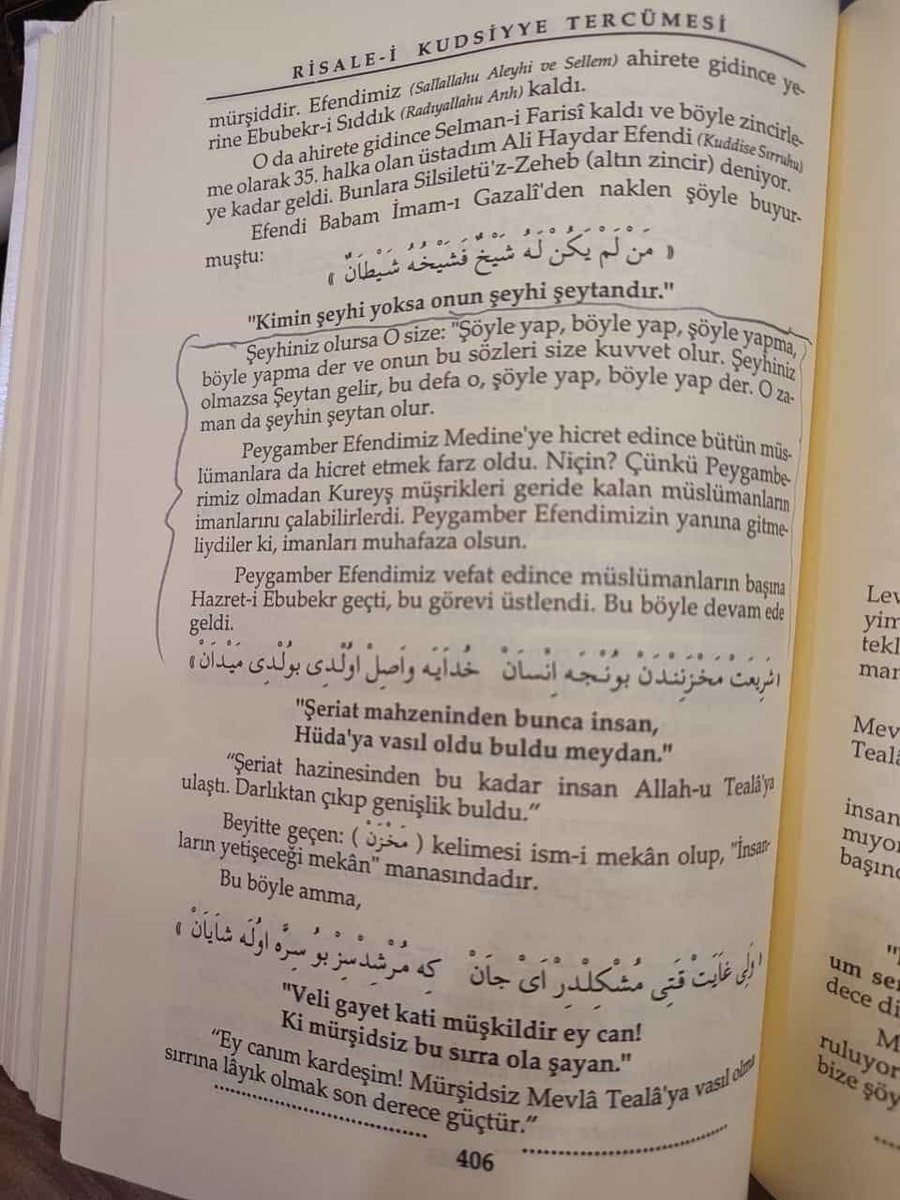 RİSALE-İ KUDSİYYE TERCÜMESİ
mürşiddir. Efendimiz (Sallallahu Aleyhi ve Sellem) ahirete gidince ye-
rine Ebubekr-i Sıddık (Radıyallahu Anh) kaldı.
O da ahirete gidince Selman-i Farisî kaldı ve böyle zincirle-
me olarak 35. halka olan üstadım Ali Haydar Efendi (Kuddise Sırruhu)
ye kadar geldi. Bunlara Silsiletü'z-Zeheb (altın zincir) deniyor.
Efendi Babam İmam-ı Gazalî'den naklen şöyle buyur-
muştu:
« مَنْ لَمْ يَكُنْ لَهُ شَيْخٌ فَشَيْخُهُ شَيْطَانٌ »
"Kimin şeyhi yoksa onun şeyhi şeytandır."
Şeyhiniz olursa O size: "Şöyle yap, böyle yap, şöyle yapma,
böyle yapma der ve onun bu sözleri size kuvvet olur. Şeyhiniz
olmazsa Şeytan gelir, bu defa o, şöyle yap, böyle yap der. O za-
man da şeyhin şeytan olur.
Peygamber Efendimiz Medine'ye hicret edince bütün müs-
lümanlara da hicret etmek farz oldu. Niçin? Çünkü Peygambe-
rimiz olmadan Kureyş müşrikleri geride kalan müslümanların
imanlarını çalabilirlerdi. Peygamber Efendimizin yanına gitme-
liydiler ki, imanları muhafaza olsun.
Peygamber Efendimiz vefat edince müslümanların başına
Hazret-i Ebubekr geçti, bu görevi üstlendi. Bu böyle devam ede
geldi.
شَرِيعَتْ مَخْزَنِنْدَنْ بُونْجَه اِنْسَانْ خُدَايَه وَاصِلْ اوُلْدِى بوُلْدِى مَيْدَانْ »
"Şeriat mahzeninden bunca insan,
Hüda'ya vasıl oldu buldu meydan."
"Şeriat hazinesinden bu kadar insan Allah-u Tealâ'ya
ulaştı. Darlıktan çıkıp genişlik buldu."
Beyitte geçen: ( مَخْزَنْ ) kelimesi ism-i mekân olup, "İnsan-
ların yetişeceği mekân" manasındadır.
Bu böyle amma,
غَايَتْ قَتِى مُشْكِلْدِرْ اَىْ جَانْ كِه مُرْشِدْسِزْ بُو سِرَّه اوُلَه شَايَانْ »
"Veli gayet kati müşkildir ey can!
Ki mürşidsiz bu sırra ola şayan."
"Ey canım kardeşim! Mürşidsiz Mevlâ Tealâ'ya vasıl olma
sırrına lâyık olmak son derece güçtür."
406
Lev
yim
tekl
mar
Mev
Teal
insan
mıyor
başınd
um se
dece di
M
ruluyor
bize şöy